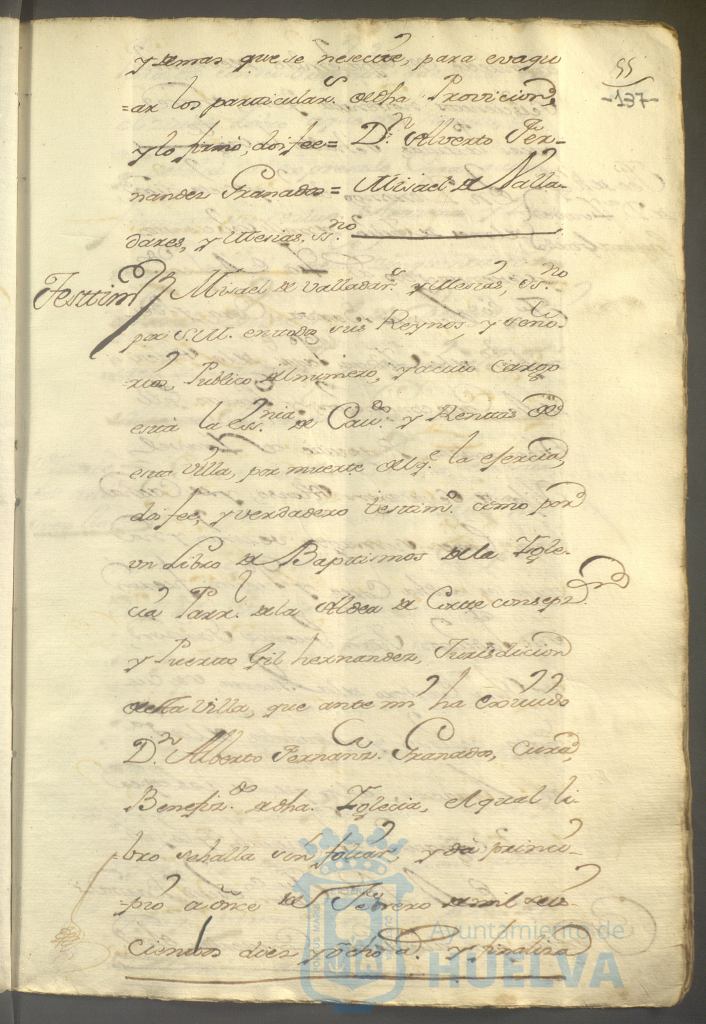 55
-137-
y demas que se nesecite, para evaqu
=ar los particular.s de dha Provicion,
y lo firmó, doi fee= D.n Alverto Fer-
nandez Granados= Misael de Valla-
dares, y Mesias, ss.no
Testtim.o Misael de Valladar.s y Mesias, ss.no
por S.M. en todos sus Reynos, y seño-
rios, Publico del numero, y a cuio cargo
está la ess.nia de Cav.do y Rentas de
esta villa, por muerte del q.e la esercia,
doi fee, y verdadero testim.o como por
un Libro de Baptismos de la Igle-
cia Parr.l de la Aldea de Corte consepz.n
y Puerto Gil hernandez, Jurisdicion
de esta Villa, que ante mi ha exsivido
D.n Alberto Fernanz. Granados, Cura,
Benefiz.do de dha. Iglecia, el qual li-
bro se halla sin foliar, y dá princi-
pio a onze de Febrero de mil seis-
cientos diez y ocho a.s y finaliza
Ayuntamiento de
HUELVA